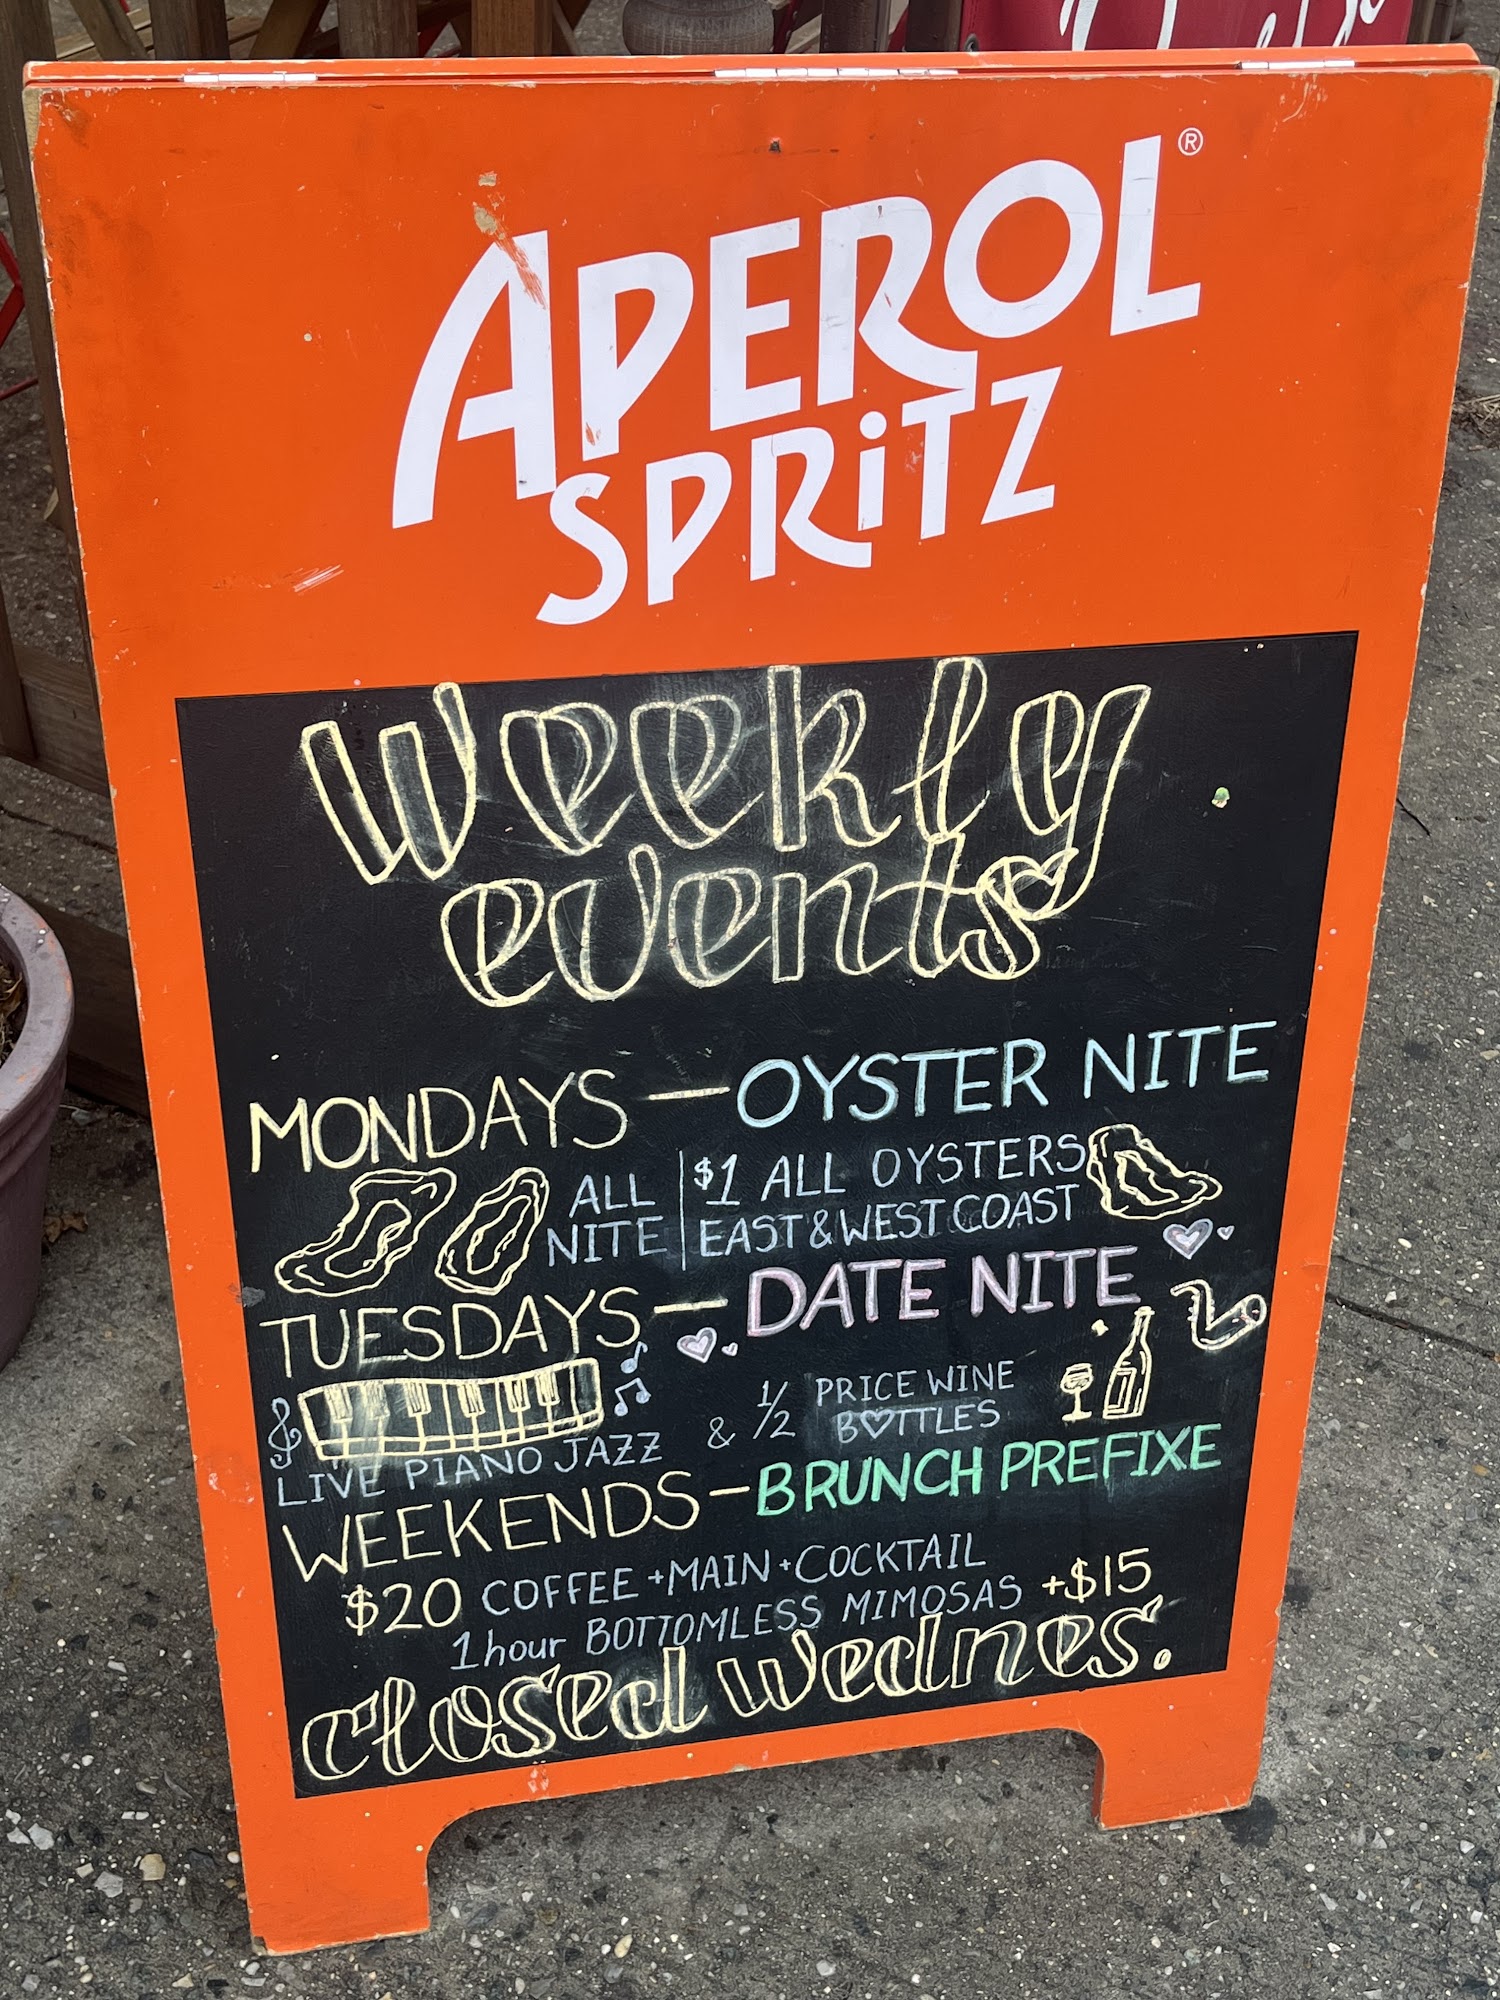 APEROL®
SPRiTZ
weekly
events
MONDAYS — OYSTER NITE
ALL NITE | $1 ALL OYSTERS
EAST & WEST COAST
TUESDAYS — DATE NITE
LIVE PIANO JAZZ & 1/2 PRICE WINE
BOTTLES
WEEKENDS — BRUNCH PREFIXE
$20 COFFEE + MAIN + COCKTAIL
1 hour BOTTOMLESS MIMOSAS +$15
closed wednes.